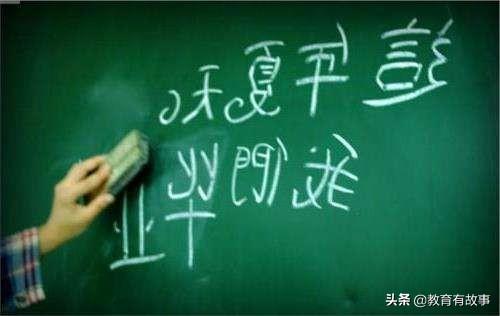 這年夏天
我們毕业
头条 @教育有故事